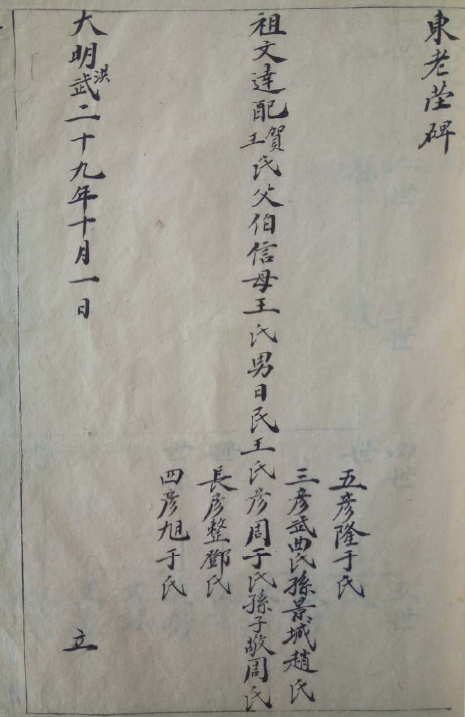 東老茔碑
五彥隆于氏
三彥武曲氏孫景城趙氏
祖文達配賀王氏父伯信母王氏男日民王氏彥周于氏孫子敬周氏
長彥整鄧氏
四彥旭于氏
大明洪武二十九年十月一日 立